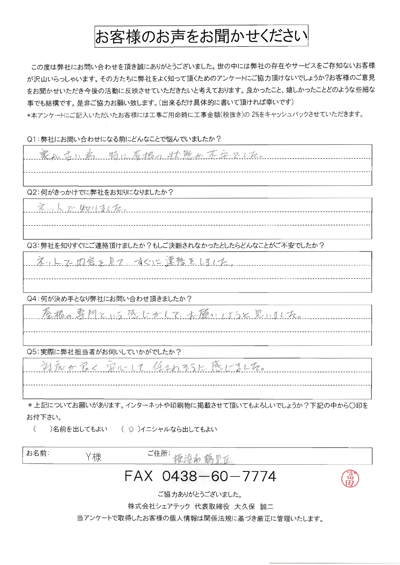 お客様のお声をお聞かせください
この度は弊社にお問い合わせを頂き誠にありがとうございました。世の中には弊社の存在やサービスをご存知ないお客様
が沢山いらっしゃいます。その方たちに弊社をよく知って頂くためのアンケートにご協力頂けないでしょうか?お客様のご意見
をお聞かせいただき今後の活動に反映させていただきたいと考えております。良かったこと、嬉しかったことなどのような些細な
事でも結構です。是非ご協力お願い致します。(出来るだけ具体的に書いて頂ければ幸いです)
*本アンケートにご記入いただいたお客様には工事ご用命時に工事金額(税抜き)の 2%をキャッシュバックさせていただきます。
Q1:弊社にお問い合わせになる前にどんなことで悩んでいましたか?
家が古い為 特に屋根の状態が不安でした。
Q2:何がきっかけでに弊社をお知りになりましたか?
ネットで知りました。
Q3:弊社を知りすぐにご連絡頂けましたか?もしご決断されなかったとしたらどんなことがご不安でしたか?
ネットで内容を見て、すぐに連絡をしました。
Q4:何が決め手となり弊社にお問い合わせ頂きましたか?
屋根の専門という感じがして、お願いしようと思いました。
Q5:実際に弊社担当者がお伺いしていかがでしたか?
対応が良く 安心して 任されそうに感じました。
*上記についてお願いがあります。インターネットや印刷物に掲載させて頂いてもよろしいでしょうか?下記の中から〇印を
お付下さい。
( )名前を出してもよい ( 〇 )イニシャルなら出してもよい
お名前: Y様 ご住所: 横浜市鶴見区
FAX 0438-60-7774
ご協力ありがとうございました。
株式会社シェアテック 代表取締役 大久保 誠二
当アンケートで取得したお客様の個人情報は関係法規に基づき厳正に管理いたします。